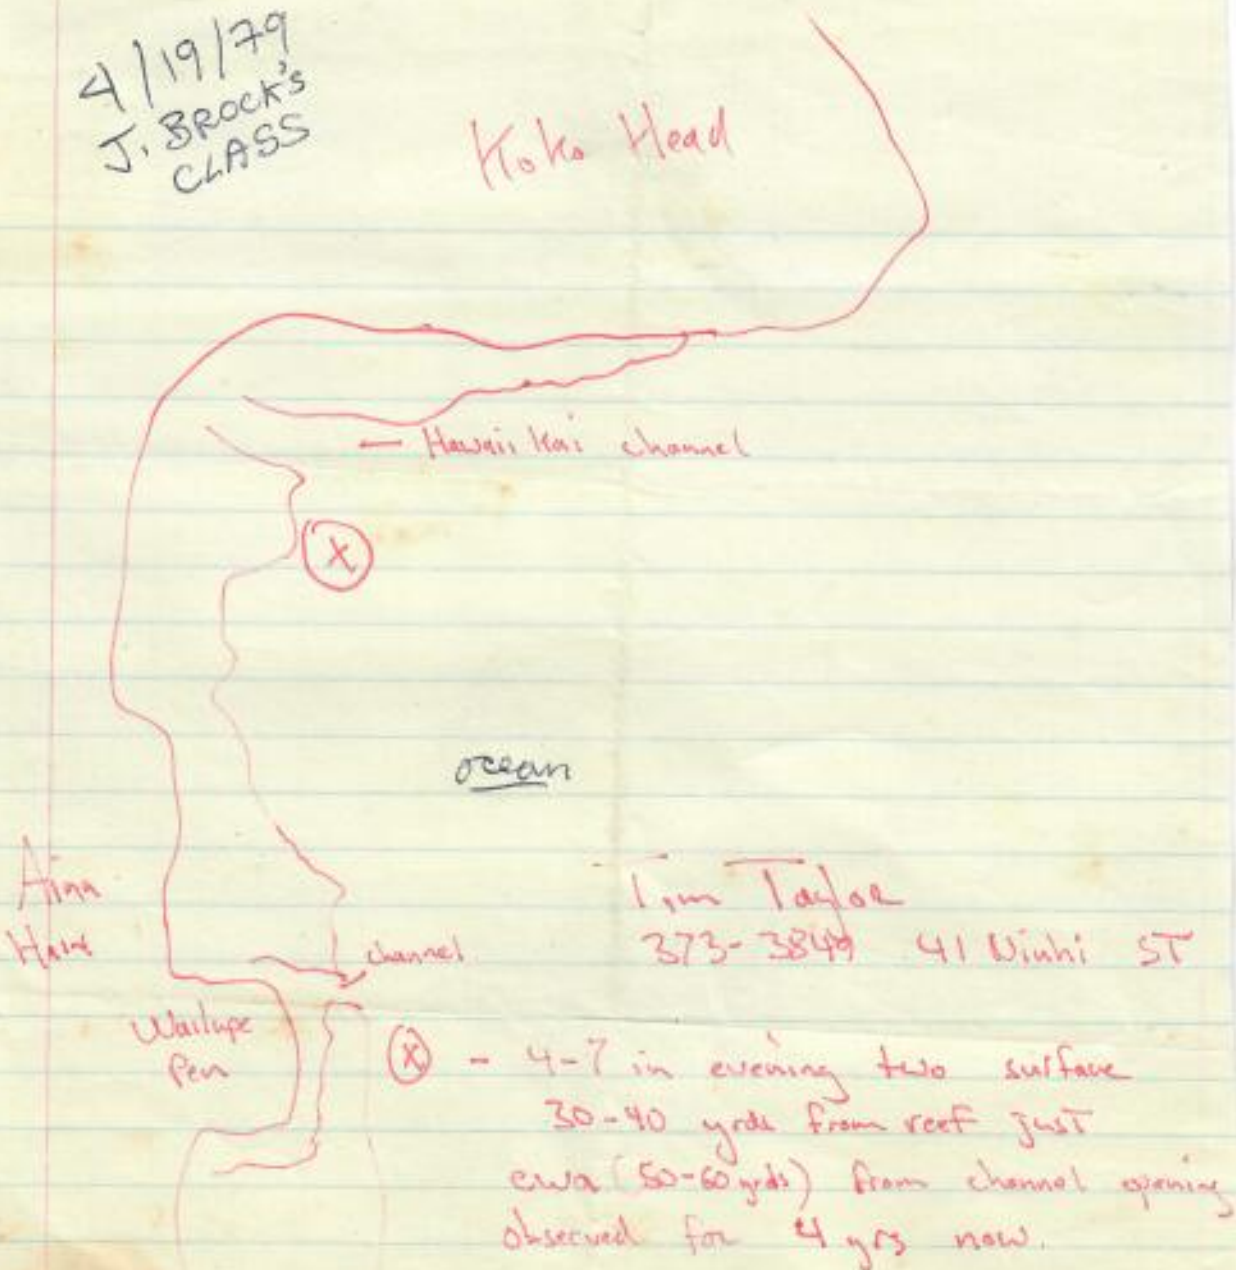 4/19/79
J. BROCK'S
CLASS
Koko Head
← Hawaii Kai channel
X
ocean
Aina
Haina
Tim Taylor
373-3849 41 Niuhi ST
channel
Wailupe
Pen
X - 4-7 in evening two surface
30-40 yrds from reef just
ewa (50-60 yrds) from channel opening
observed for 4 yrs now.